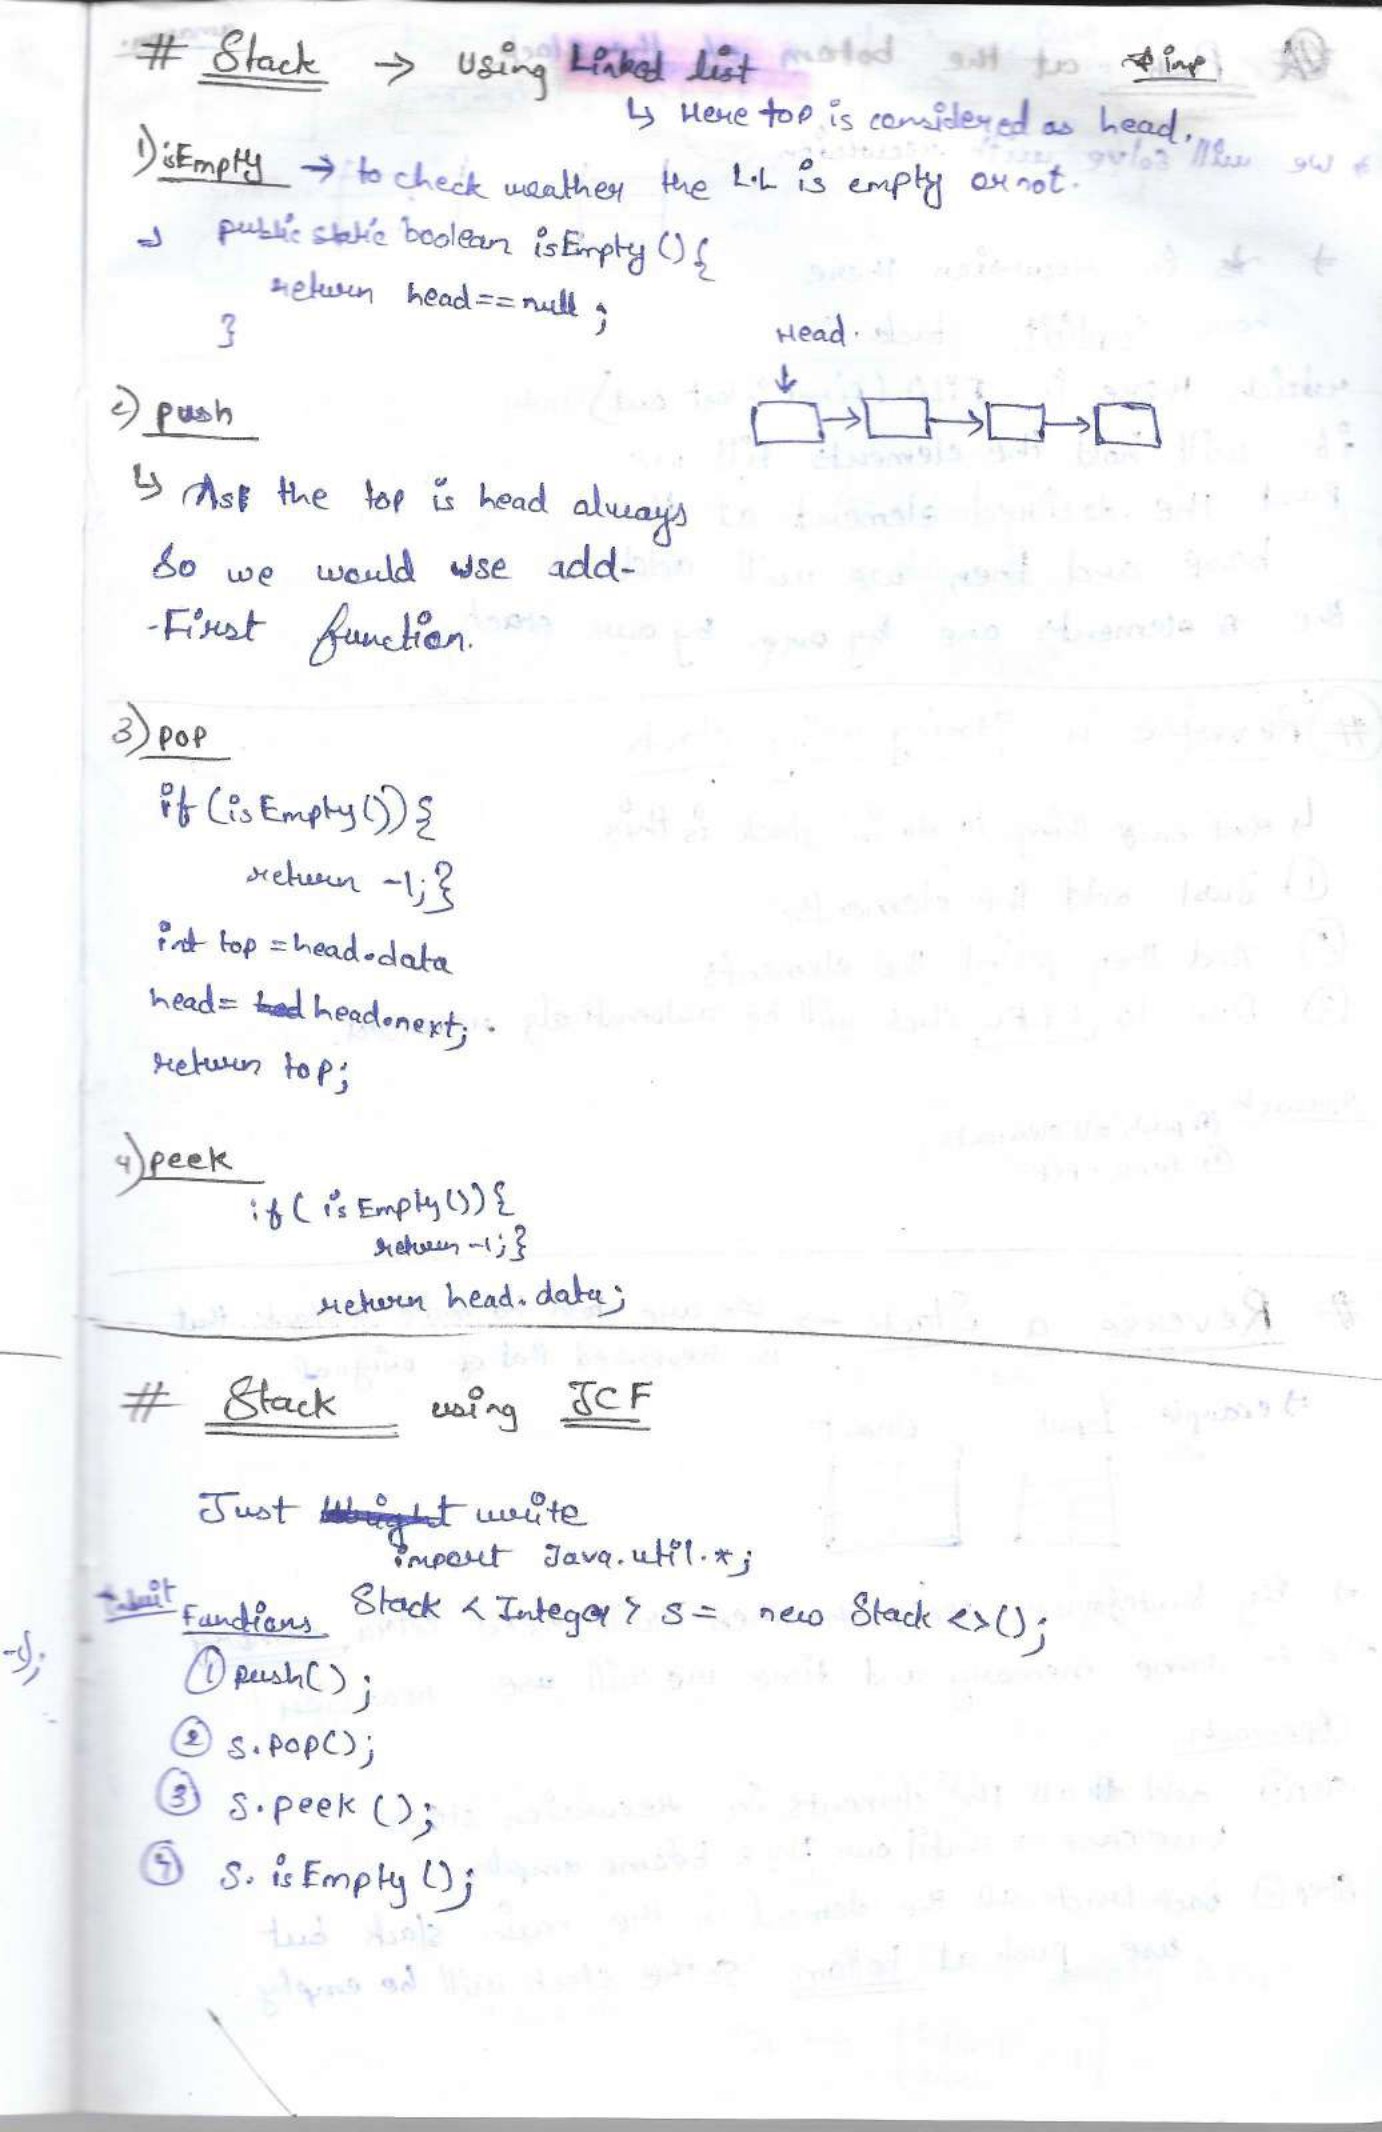 # Stack → using Linked list * imp
↳ Here top is considered as head.
1) isEmpty → to check weather the L.L is empty or not.
→ public static boolean isEmpty () {
return head == null ;
}
Head.
2) push
↳ As the top is head always
So we would use add-
-First function.
3) pop
if (isEmpty()) {
return -1; }
int top = head.data
head = head.next; .
return top;
4) peek
if ( isEmpty()) {
return -1; }
return head.data;
# Stack using JCF
Just write
import Java.util.*;
Stack < Integer > s = new Stack <>();
Functions
① push();
② s.pop();
③ s.peek ();
④ s. isEmpty ();
-1);